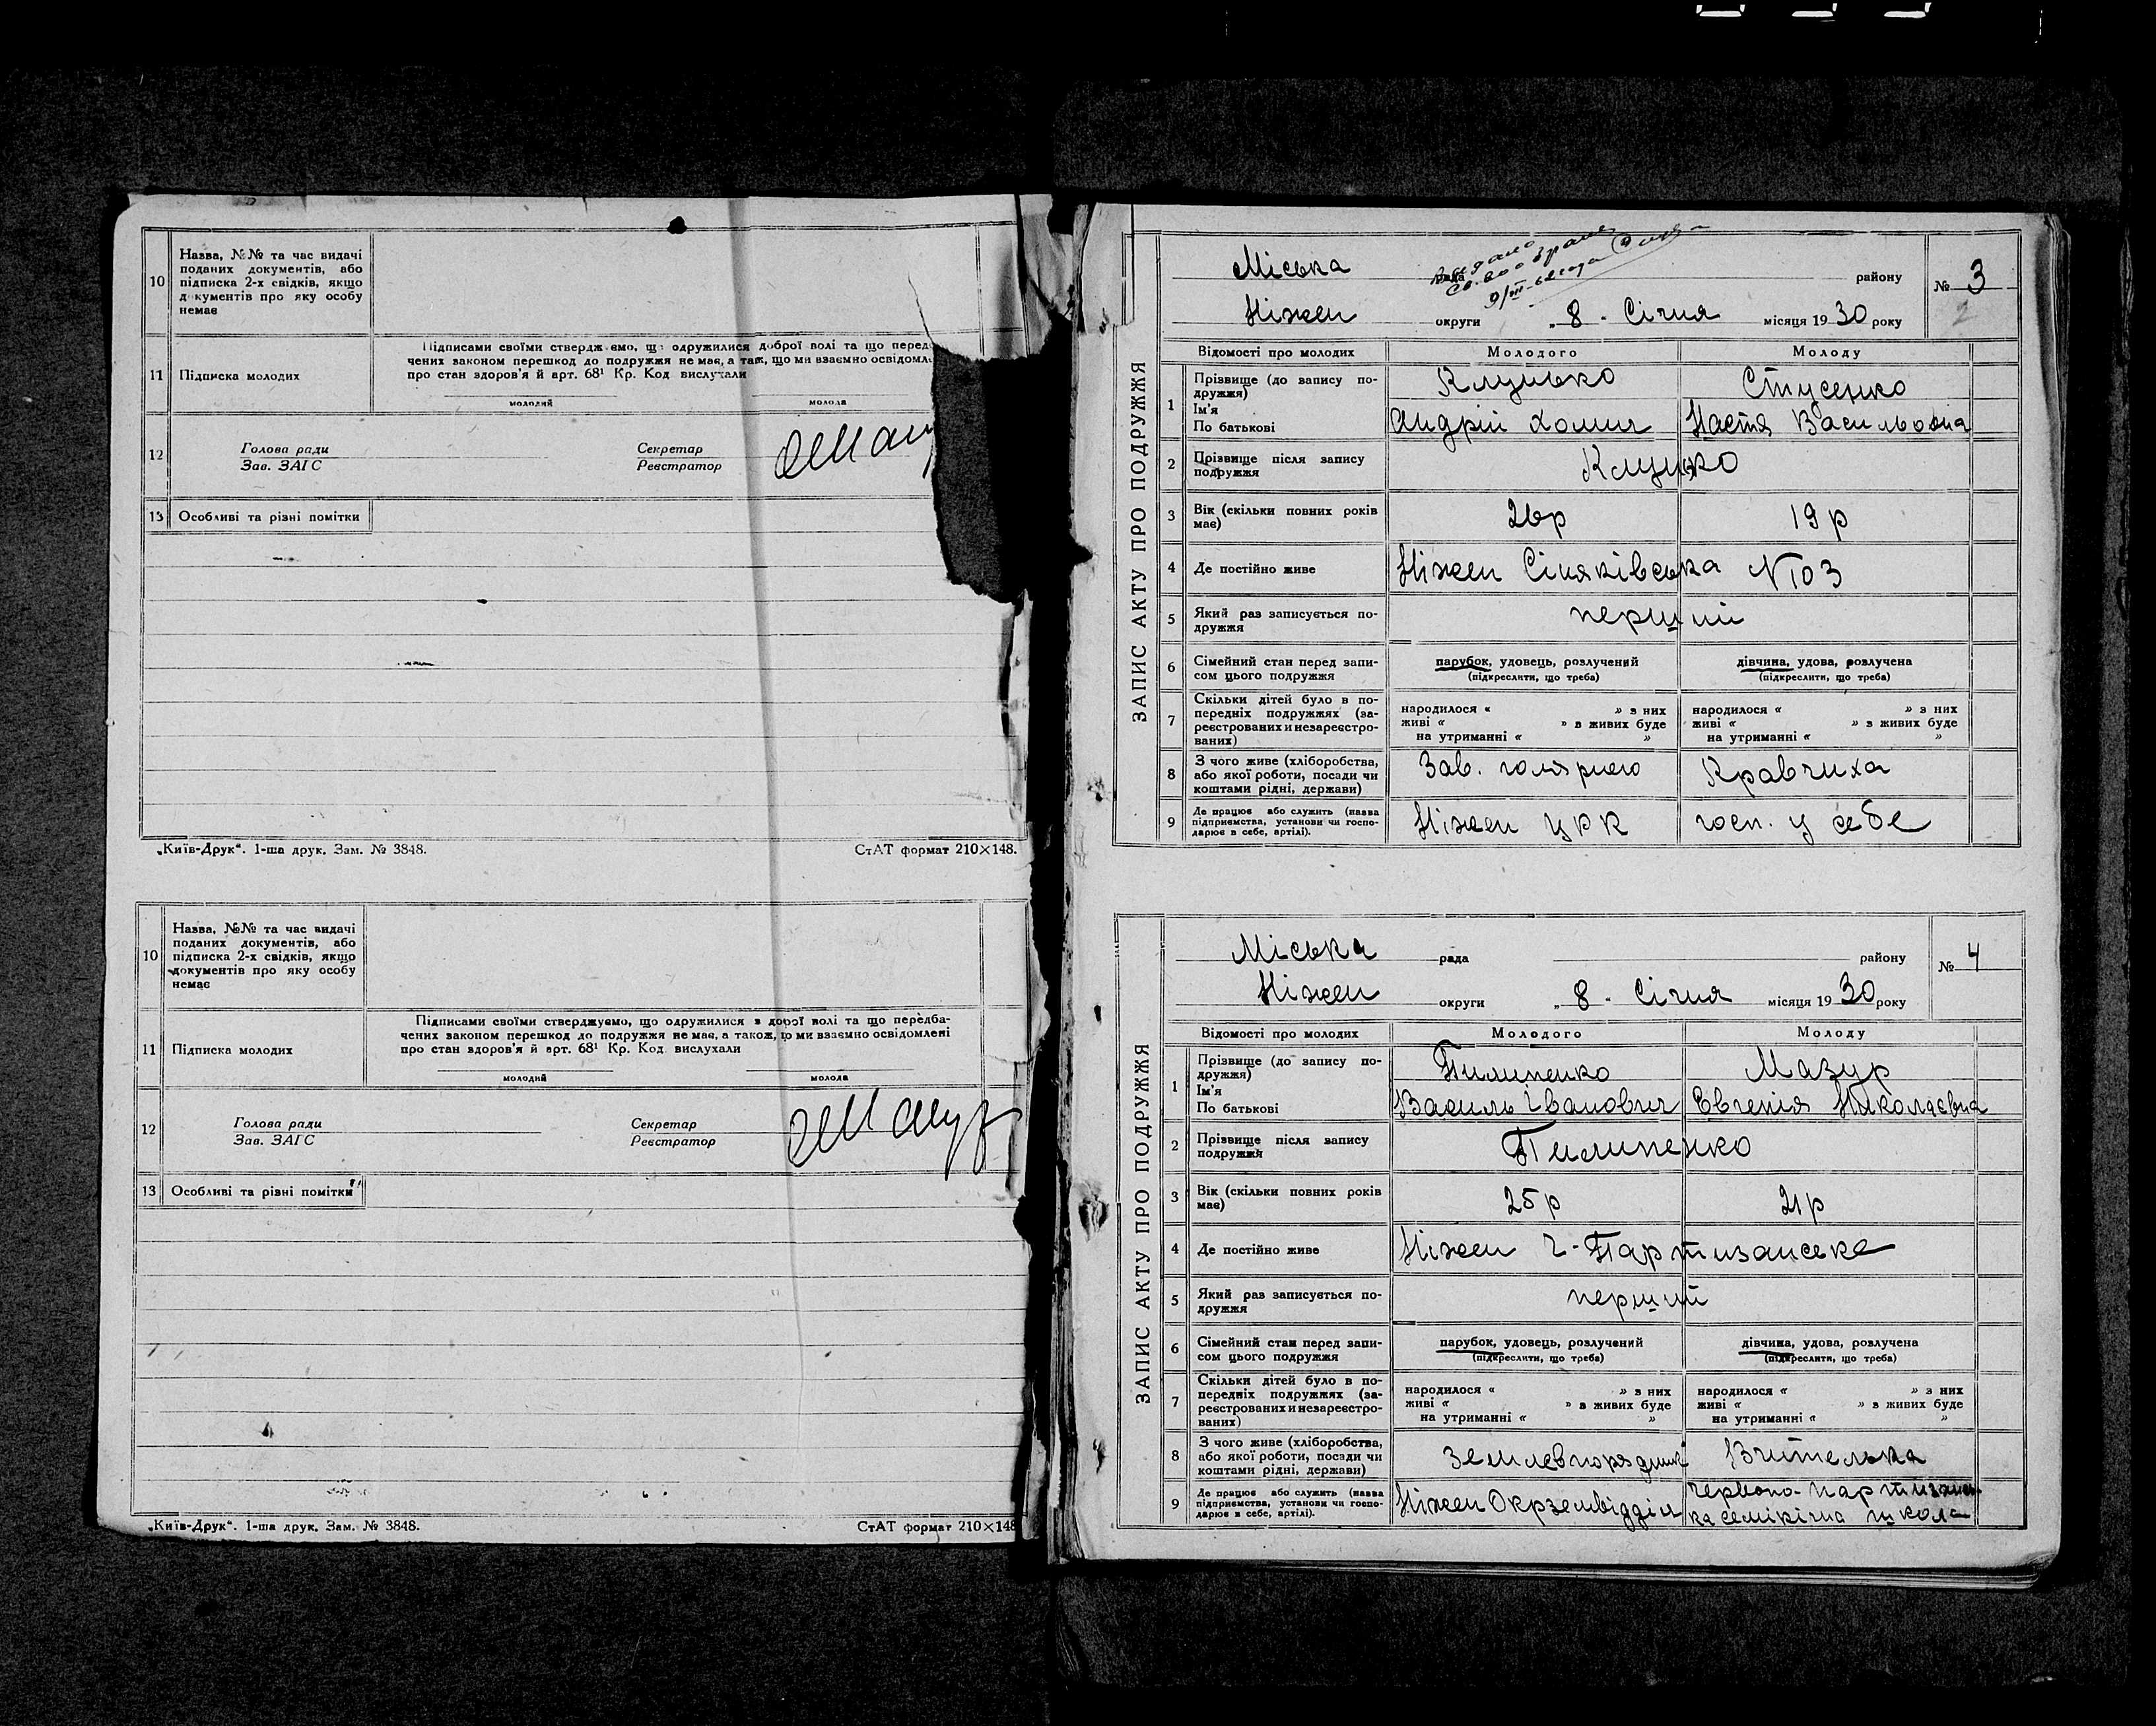 10
Назва, №№ та час видачі
поданих документів, або
підписка 2-х свідків, якщо
документів про яку особу
немає
11 Підписка молодих
Підписами своїми стверджуємо, що одружилися доброї волі та що перед
чених законом перешкод до подружжя не має, а також, що ми взаємно освідомл
про стан здоров'я й арт. 68¹ Кр. Код вислухали
молодий молода
12
Голова ради Секретар
Зав. ЗАГС Реєстратор
13 Особливі та різні помітки
„Київ-Друк“. 1-ша друк. Зам. № 3848. СтАТ формат 210×148.
10
Назва, №№ та час видачі
поданих документів, або
підписка 2-х свідків, якщо
документів про яку особу
немає
11 Підписка молодих
Підписами своїми стверджуємо, що одружилися з дорої волі та що передба-
чених законом перешкод до подружжя не має, а також, що ми взаємно освідомлені
про стан здоров'я й арт. 68¹ Кр. Код вислухали
молодий молода
12
Голова ради Секретар
Зав. ЗАГС Реєстратор
13 Особливі та різні помітки
„Київ-Друк“. 1-ша друк. Зам. № 3848. СтАТ формат 210×148
ЗАПИС АКТУ ПРО ПОДРУЖЖЯ
Міська рада району № 3
2
9/III-62 года
Ніжен округи „8“ Січня місяця 1930 року
Відомості про молодих Молодого Молоду
1 Прізвище (до запису по-
дружжя)
Ім'я
По батькові
Клунько Стусенко
Андрій Хомич Настя Васильовна
2 Прізвище після запису
подружжя
Клунько
3 Вік (скільки повних років
має)
26р 19р
4 Де постійно живе Ніжен Синяківська №103
5 Який раз записується по-
дружжя
перший
6 Сімейний стан перед запи-
сом цього подружжя
парубок, удовець, розлучений дівчина, удова, розлучена
(підкреслити, що треба) (підкреслити, що треба)
7 Скільки дітей було в по-
передніх подружжях (за-
реєстрованих и незареєстро-
ваних)
народилося « » з них народилося « » з них
живі « » в живих буде живі « » в живих буде
на утриманні « » на утриманні « »
8 З чого живе (хліборобства,
або якої роботи, посади чи
коштами рідні, держави)
Зав. голярнею Кравчиха
9 Де працює або служить (назва
підприємства, установи чи госпо-
дарює в себе, артілі).
Ніжен ЦРК госп. у себе
ЗАПИС АКТУ ПРО ПОДРУЖЖЯ
Міська рада району № 4
Ніжен округи „8“ Січня місяця 1930 року
Відомості про молодих Молодого Молоду
1 Прізвище (до запису по-
дружжя)
Ім'я
По батькові
Пилипенко Мазур
Василь Іванович Євгенія Николаєвна
2 Прізвище після запису
подружжя
Пилипенко
3 Вік (скільки повних років
має)
25р 21р
4 Де постійно живе Ніжен Ч-Партизанське
5 Який раз записується по-
дружжя
перший
6 Сімейний стан перед запи-
сом цього подружжя
парубок, удовець, розлучений дівчина, удова, розлучена
(підкреслити, що треба) (підкреслити, що треба)
7 Скільки дітей було в по-
передніх подружжях (за-
реєстрованих и незареєстро-
ваних)
народилося « » з них народилося « » з них
живі « » в живих буде живі « » в живих буде
на утриманні « » на утриманні « »
8 З чого живе (хліборобства,
або якої роботи, посади чи
коштами рідні, держави)
Землевпорядник Вителька
9 Де працює або служить (назва
підприємства, установи чи госпо-
дарює в себе, артілі).
Ніжен Окрземвідділ Червоно-партизансь-
ка семірічна школа